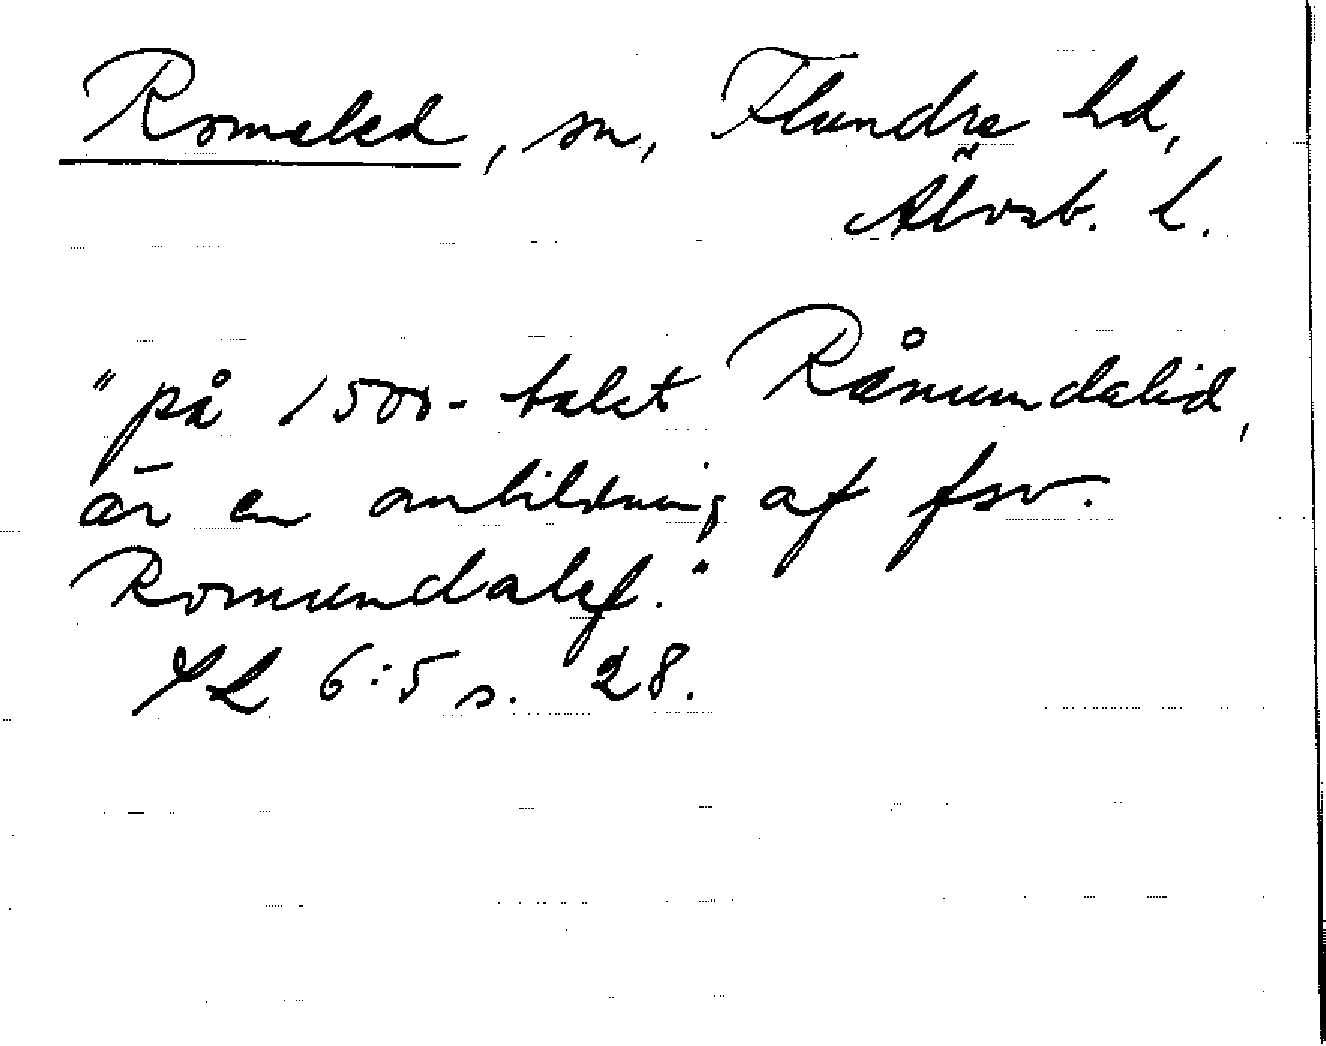 Romeled, sn, Flundre hd,
Älvsb. L.
"på 1500-talet Råmundalid,
är en ombildning af fsv.
Romundalef."
SL 6:5 s. 28.